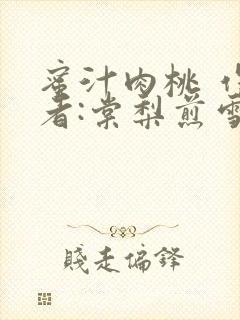 蜜汁肉桃 作
者:棠梨煎雪
賤走偏鋒